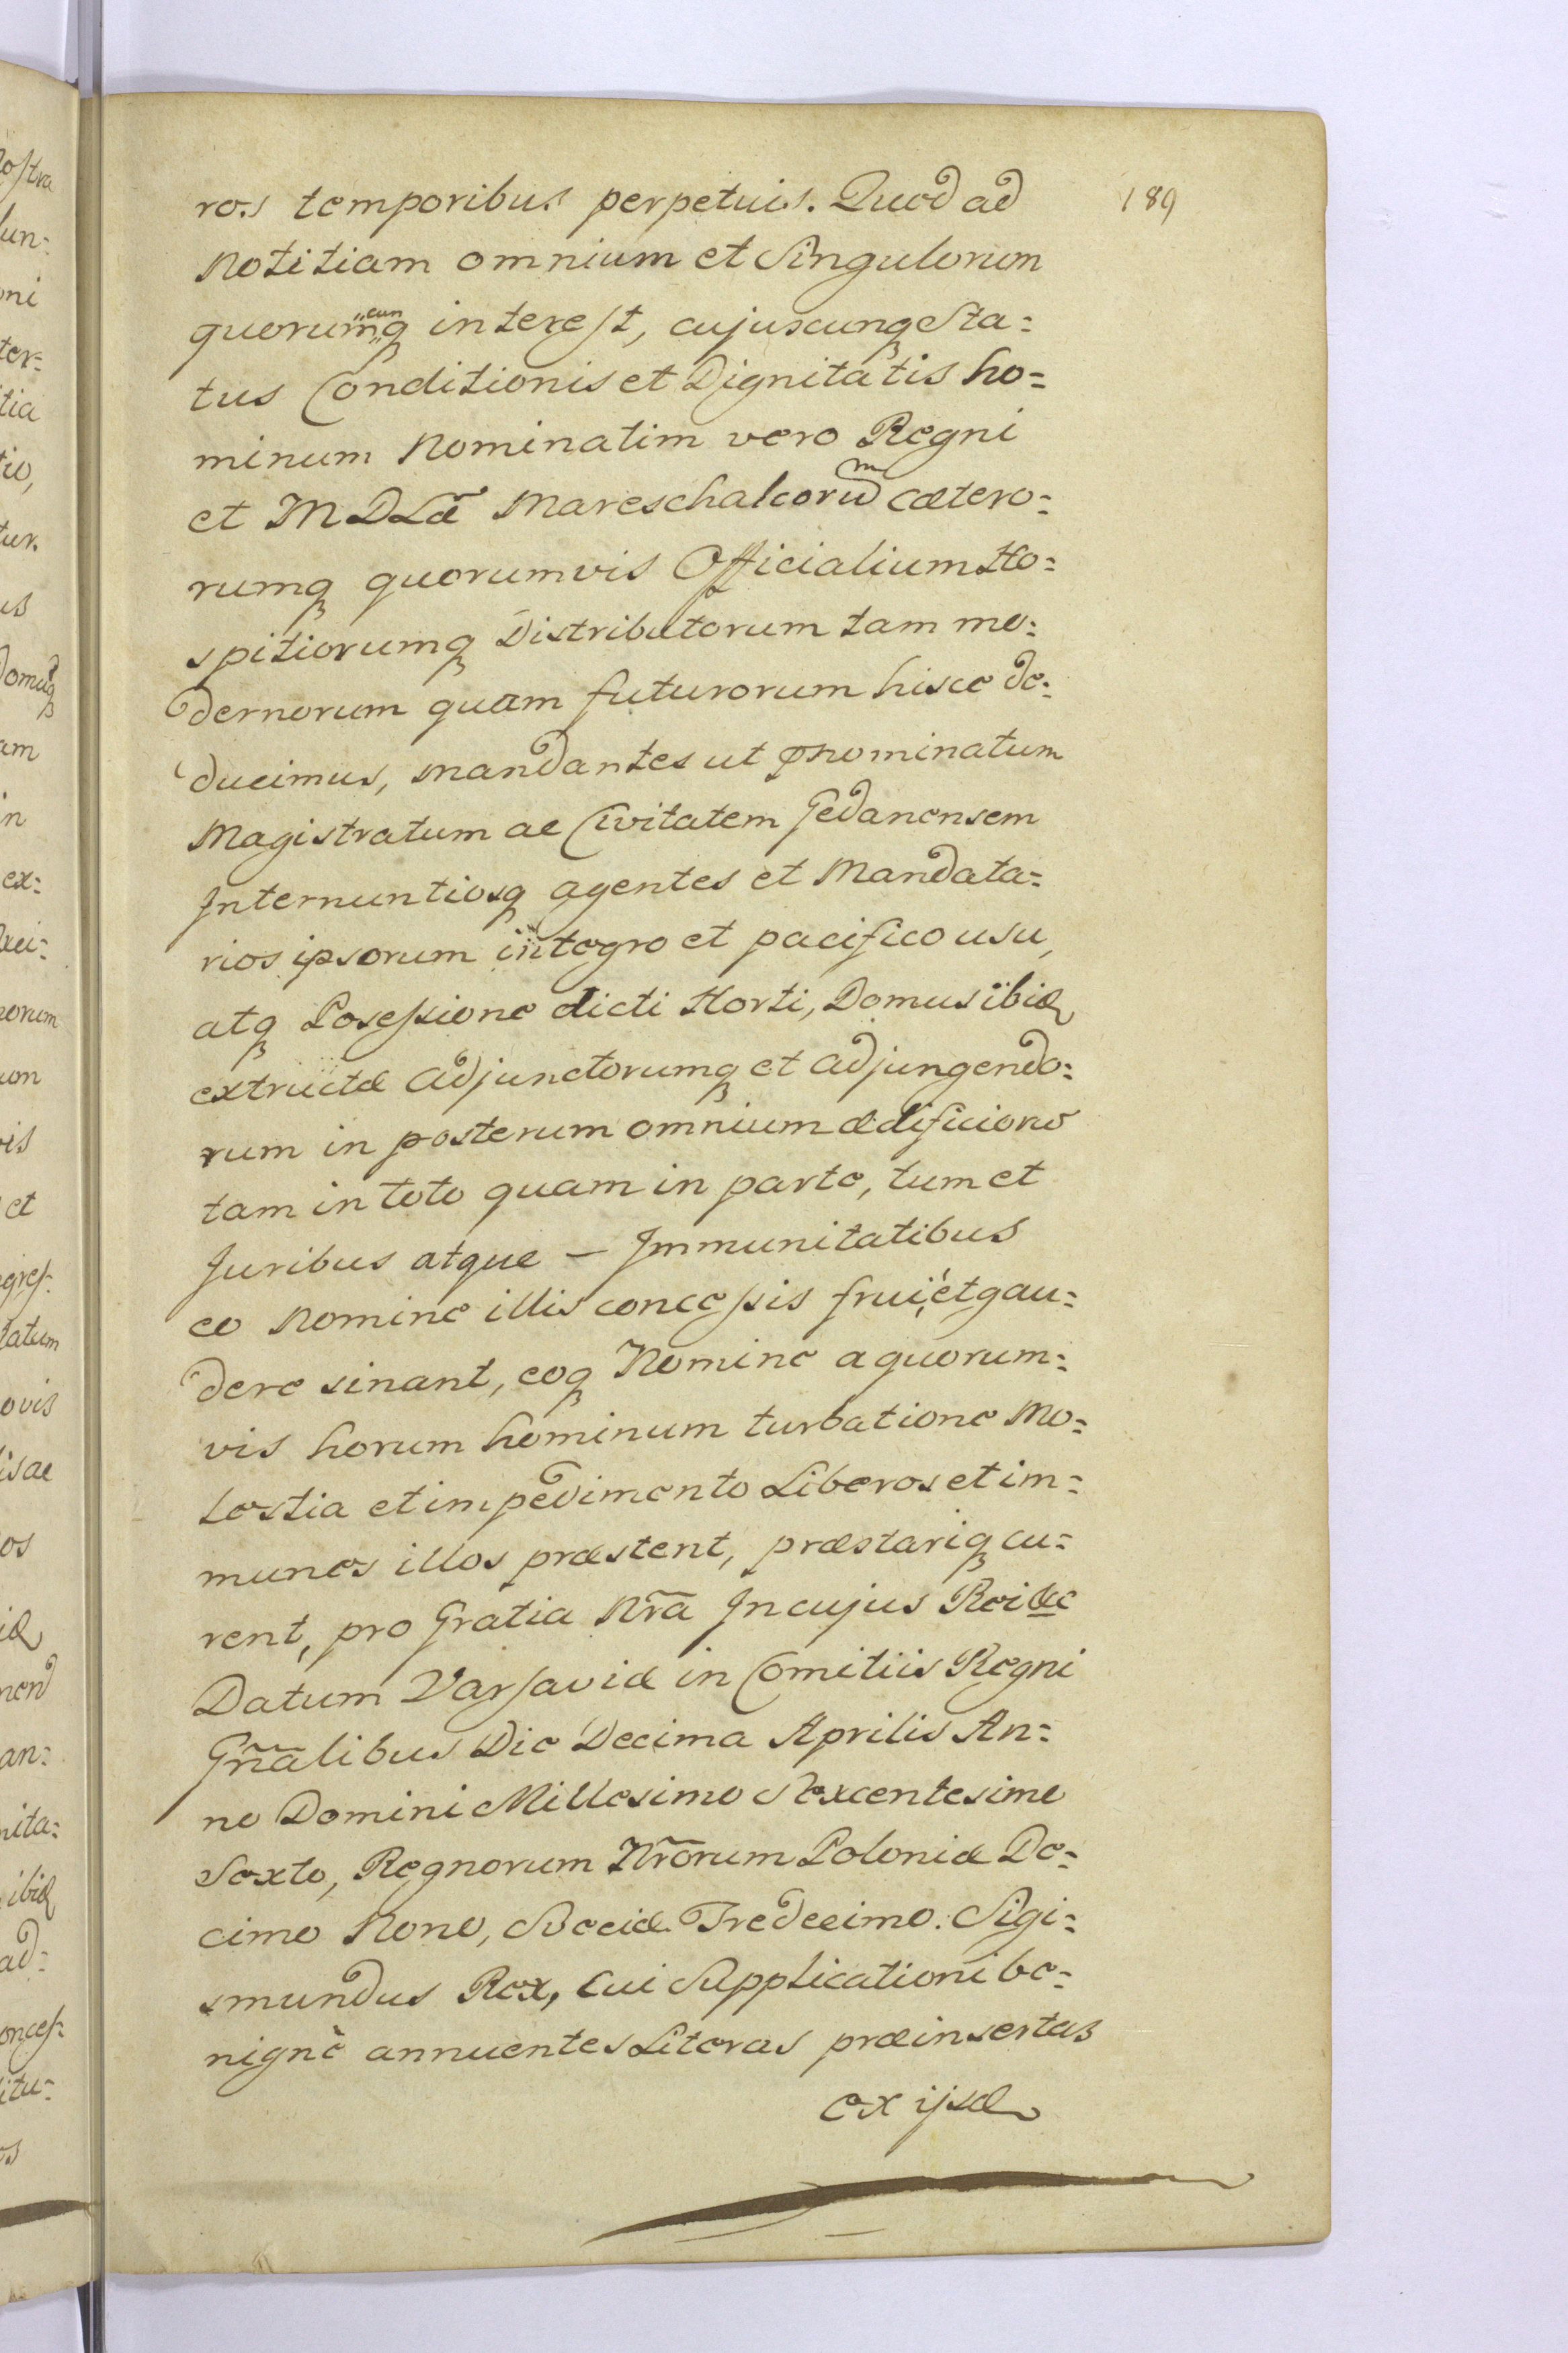 189
ros temporibus perpetuis. Quod ad
Notitiam omnium et Singulorum
quorumcunq interest, cujuscunq Sta=
tus Conditionis et Dignitatis ho=
minum Nominatim vero Regni
et M D Læ Mareschalcorum cætero=
rumq quorumvis Officialium Ho=
spitiorumq Distributorum tam mo=
dernorum quam futurorum hisce de=
ducimus, mandantes ut pnominatum
Magistratum ac Civitatem Gedanensem
Internuntiosq agentes et Mandata=
rios ipsorum integro et pacifico usu,
atq Posessione dicti Horti, Domus ibid
extructæ adjunctorumq et adjungendo=
rum in posterum omnium ædificiorū
tam in toto quam in parte, tum et
Juribus atque — Immunitatibus
eo Nomine illis concessis frui, et gau=
dere sinant, eoq Nomine a quorum=
vis horum hominum turbatione Mo=
lestia et impedimento Liberos et im=
munes illos præstent, præstariq cu=
rent, pro Gratia Nrã In cujus Rei &c
Datum Varsaviæ in Comitiis Regni
Gnãlibus Die Decima Aprilis An=
no Domini Millesimo Sexcentesimo
Sexto, Regnorum Nrõrum Poloniæ De=
cimo Nono, Sveciæ Tredecimo. Sigi=
smundus Rex, Cui Supplicationi be=
nignè annuentes Literas præinsertas
ex ijsd